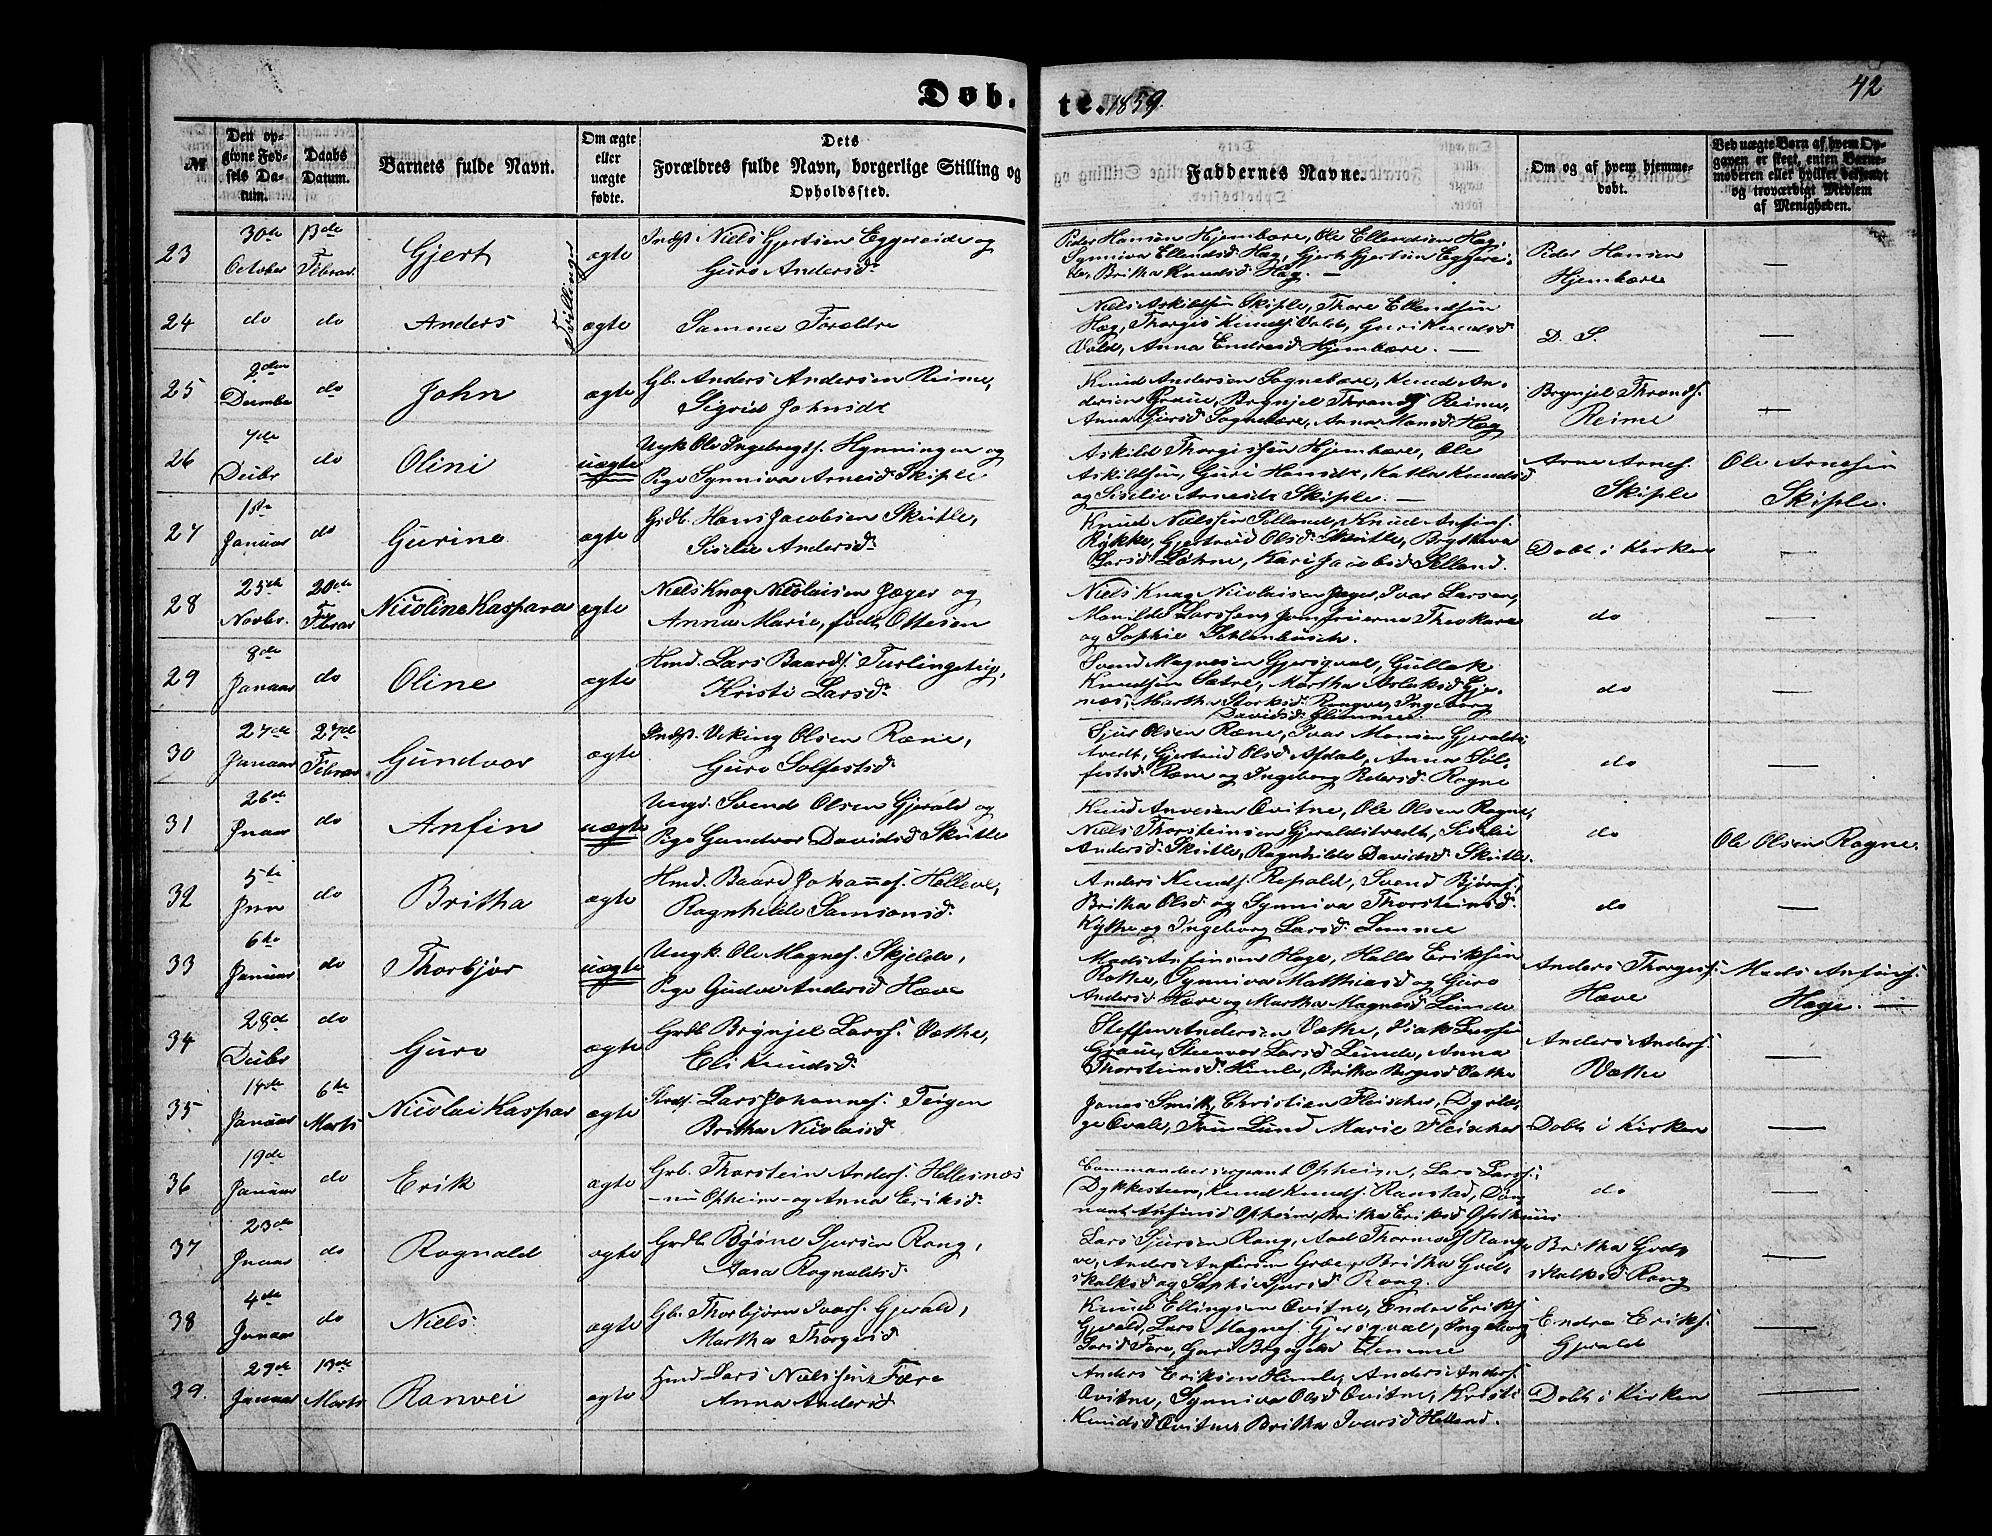 42
Døb. te. 1859.
№
Den opgivne Fødsels Datum.
Daabs Datum.
Barnets fulde Navn.
Om ægte eller uægte fødte.
Dets Forældres fulde Navn, borgerlige Stilling og Opholdssted.
Faddernes Navne.
Om og af hvem hjemmedøbt.
Ved uægte Børn af hvem Opgaven er skeet, enten Barnemoderen eller hvilket bekjendt og troværdigt Medlem af Menigheden.
23 30te October 13de Februar Gjert Tvillinger ægte
Indst Niels Gjertsen Eggereide og
Guro Andersd.
Peder Hansen Hjembære, Ole Ellendsen Hæg,
Synniva Ellendsd. Hæg, Gjert Gjertsen Eggerei-
de, Britha Knudsd. Hæg. —
Peder Hansen
Hjembære
—
24 do do Anders ægte
Samme Forældre
Niels Askildsen Skiple, Thore Ellendsen
Hæg, Thorgis Knuds. Vold, Guri Knudsd.
Vold, Anna Endresd. Hjembære. —
D. S.
—
25 2den Decembe do John ægte
Gb. Anders Andersen Reime,
Sigrid Johnsdr
Knud Andersen Sognebære, Knud An-
dersen Graue, Brynjel Thrands. Reime,
Anna Sjursd. Sognebære, Anna Monsd. Hæg
Brynjel Thrands.
Reime
—
26 7de Decbr do Olini uægte
Ungk Ole Ingebregts. Hynningen og
Pige Synniva Arnesd. Skiple
Askild Thorgissen Hjembære, Ole
Askildsen, Guri Hansdr, Katla Knudsd
og Siselie Arnesdr Skiple. —
Arne Arnes.
Skiple
Ole Arnesen
Skiple.
27 1ste Januar do Gurine ægte
Grdb. Hans Jacobsen Skutle,
Siselie Andersd.
Knud Nielssen Selland, Knud Anfins.
Rykke, Gjertrud Olsd. Skutle, Brytteva
Larsd. Løhne, Kari Jacobsd. Selland.
Døbt i Kirken
—
28 25de Novbr. 20de Februar Nicoline Kaspara ægte
Niels Knag Nicolaisen Jæger og
Anna Marie, født Ottesen
Niels Knag Nicolaisen Jæger, Ivar Larsen,
Monilde Larssen, Jomfruerne Theokare
og Sophie Sehlenbusch.
do
—
29 8de Januar do Oline ægte
Hmd. Lars Baards. Turlingstrig,
Kristi Larsd.
Svend Magnesen Gjersqval, Gullek
Knudsen Sætre, Martha Aslaksd. Gjer-
næs, Martha Storksd. Rongve, Ingeborg
Davidsd. Glimme.
do
—
30 27de Januar 27de Februar Gundvor ægte
Indst. Viking Olsen Rene,
Guro Solfestsd.
Sjur Olsen Rene, Ivar Monsen Gjeralds-
tvedt, Gjertrud Olsd. Afdal, Anna Sol-
festsd. Rene og Ingeborg Pedersd. Rogne
do
—
31 26de Jnuar do Anfin uægte
Ungk. Svend Olsen Gjerald og
Pige Gundvor Davidsd. Skutle
Knud Anvesen Qvitne, Ole Olsen Rogne,
Niels Thorsteinsen Gjeraldstvedt, Siselie
Andersd. Skutle, Ragnhilde Davidsd. Skutle.
do
Ole Olsen Rogne.
32 5te Jnn do Britha ægte
Hmd. Baard Johannes. Helleve,
Ragnhilde Samsonsd.
Anders Knuds. Repald, Svend Bjørns.,
Britha Olsd. og Synniva Thorsteinsd.
Kythe, og Ingeborg Larsd. Lemme
do
—
33 6te Januar do Thorbjør uægte
Ungk. Ole Magnes. Skjelde,
Pige Gudve Andersd. Hæve
Mads Anfinsen Hage, Halle Eriksen
Rokne, Synniva Matthiasd. og Guro
Andersd. Hæve og Martha Magnesd. Lunde
Anders Thorges.
Hæve
Mads Anfins.
Hage. —
34 28de Decbr do Guro ægte
Grdb Brynjel Larss. Væthe,
Eli Knudsd.
Steffen Andersen Væthe, Isak Larsen
Graue, Steenvor Larsd. Lunde, Anna
Thorsteinsd. Himle, Britha Børgesd. Vathe
Anders Anders.
Væthe
—
35 14de Januar 6te Marts Nicolai Kaspar ægte
Lars Johannes. Teigen
Britha Nicolaisd.
Jonas Smik, Christian Fleischer, Dyrlæ-
ge Qvale, Fru Lund, Marie Fleischer
Døbt i Kirken
—
36 19de Januar do Erik ægte
Grb. Thorstein Anders. Hellesnæs
—nu Opheim— og Anna Eriksd.
Commandersergeant Opheim, Lars Larss.
Dykkesteen, Knud Knuds. Ronstad, Døn-
naut Anfinsd. Opheim, Britha Eriksd. Opsthuus
do
—
37 23de Jnuar do Rognald ægte
Grdb Bjørne Sjursen Rong,
Aasa Rognaldsd.
Lars Sjursen Rong, Aad Thormods. Rong-
ve, Anders Anfinsen Græe, Britha God-
skalksd. og Sophi Sjursd. Rong.
Britha God-
skalksd. Rong
—
38 4de Januar do Niels ægte
Gb. Thorbjørn Ivars. Gjerald,
Martha Thorgesd.
Knud Ellingsen Qvitne, Endre Eriks.
Gjerald, Lars Magnes. Gjersqval, Ingeborg
Larsd. Fære, Guri Brynjelsd. Lemme
Endre Eriks.
Gjerald
—
39. 29de Jnuar 13de Marts Ranvei ægte
Hmd Lars Nielssen Fære
Anna Andersd.
Anders Eriksen Himle, Anders Anders.
Qvitne, Synniva Olsd. Qvitne, Kristi
Knudsd. Qvitne, Britha Ivarsd. Helland.
Døbt i Kirken
—